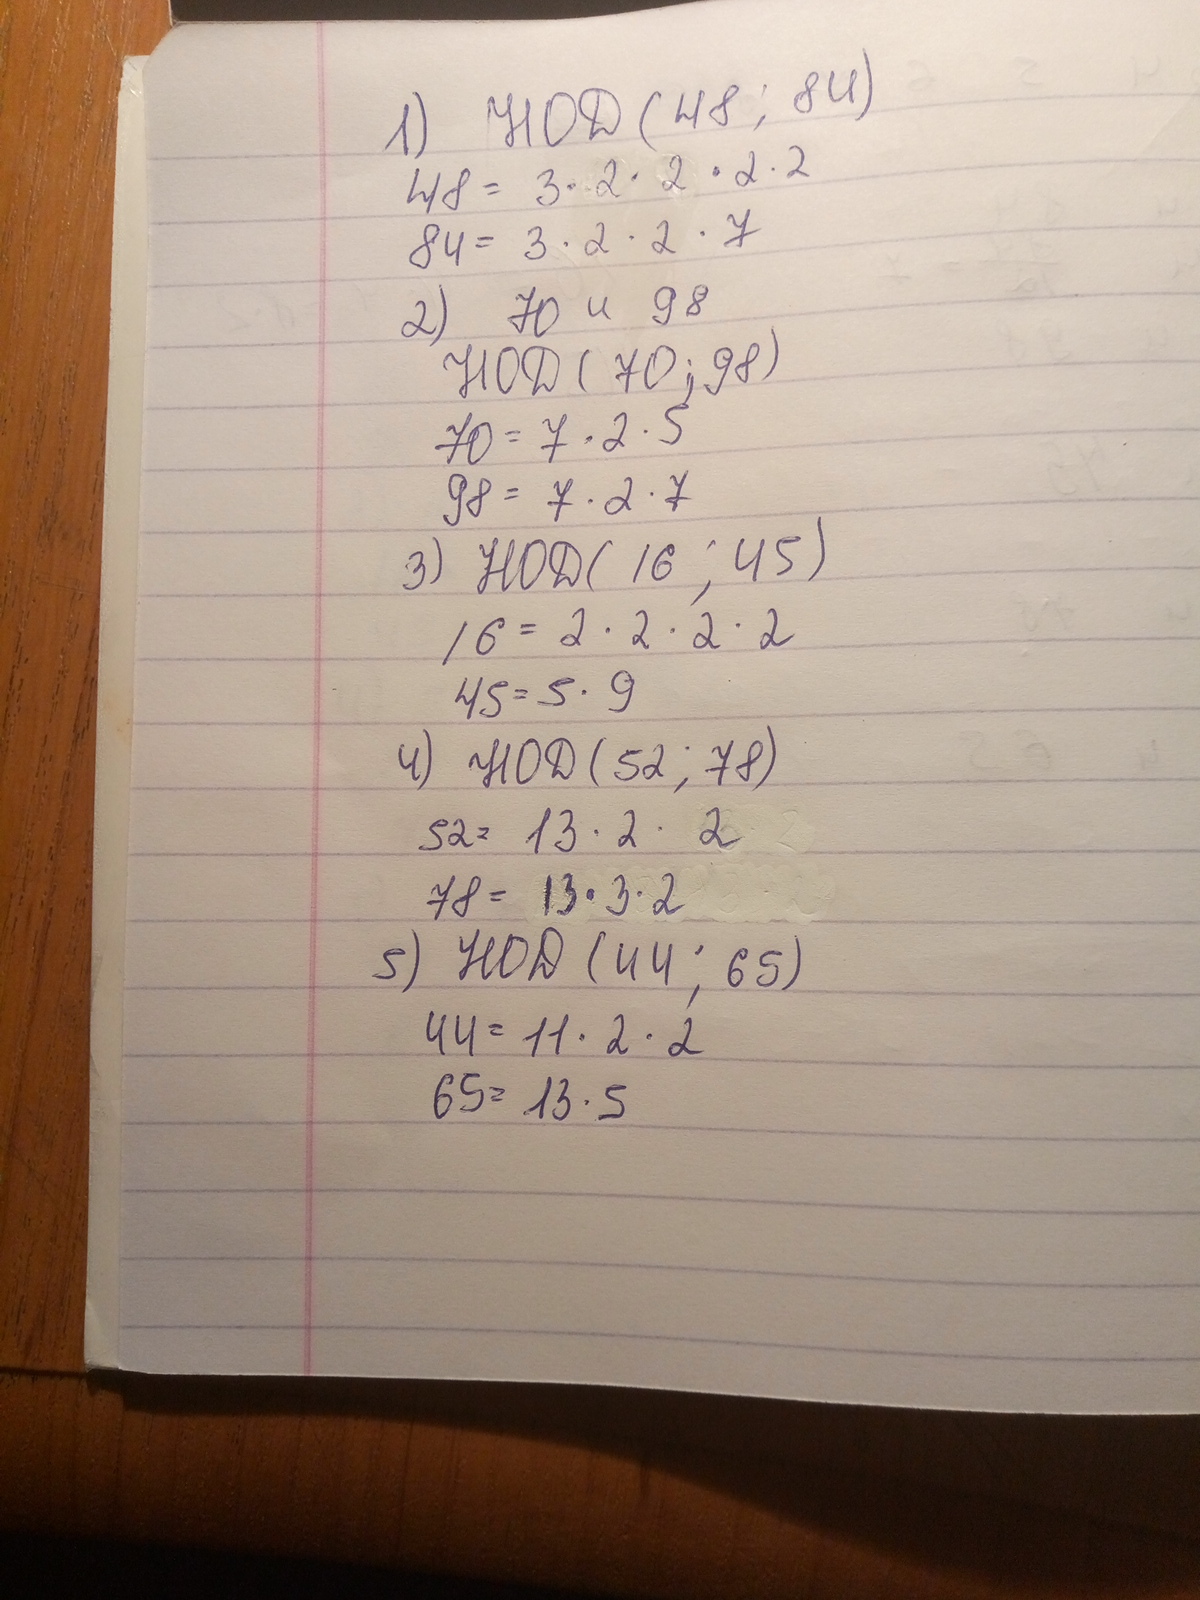 1) НОД (48; 84)
48 = 3 · 2 · 2 · 2 · 2
84 = 3 · 2 · 2 · 7
2) 70 и 98
НОД (70; 98)
70 = 7 · 2 · 5
98 = 7 · 2 · 7
3) НОД (16; 45)
16 = 2 · 2 · 2 · 2
45 = 5 · 9
4) НОД (52; 78)
52 = 13 · 2 · 2
78 = 13 · 3 · 2
5) НОД (44; 65)
44 = 11 · 2 · 2
65 = 13 · 5